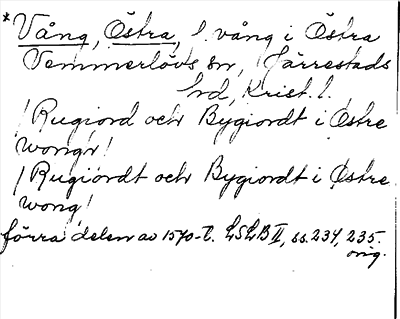 *Vång, Östra, f. vång i Östra
Vemmerlövs sn, Järrestads
hd, Krist. l.
/Rugiord och Bygiordt i Østre
wongn/
/Rugiördt och Bygiordt i Østre
wong/
förra delen av 1570-t. LSLB II, ss. 234, 235.
orig.